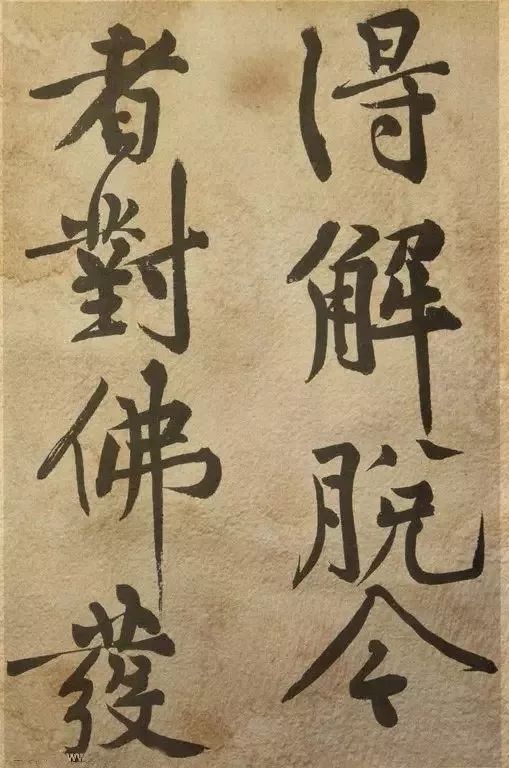 得解脱令
者對佛發